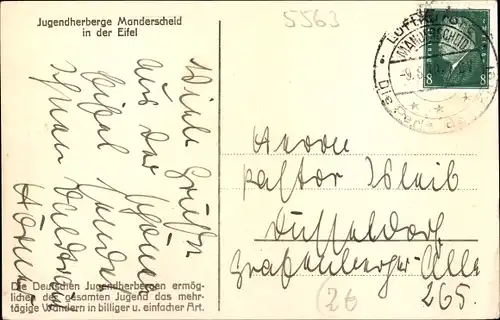 Jugendherberge Manderscheid
in der Eifel
5563
LUFTKURORT
MANDERSCHEID
8 8
Viele Grüße
aus der schönen
Eifel sendet
Ihnen
Herrn
Pastor Isleib
Düsseldorf
Grafenberger-Allee
265.
Die Deutschen Jugendherbergen ermög-
lichen der gesamten Jugend das mehr-
tägige Wandern in billiger u. einfacher Art.